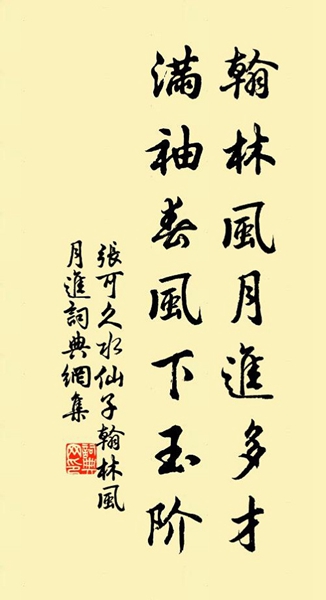 翰林風月進多才
滿袖春風下玉阶
張可久水仙子翰林風
月進詞典網集